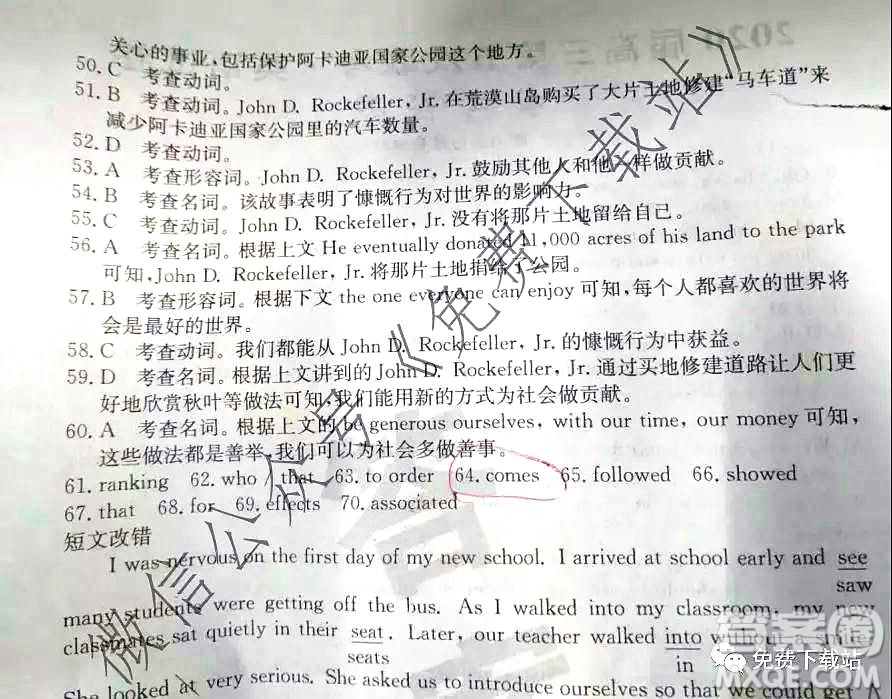 关心的事业，包括保护阿卡迪亚国家公园这个地方。
50. C 考查动词。
51. B 考查动词。John D. Rockefeller, Jr. 在荒漠山岛购买了大片土地修建“马车道”来
减少阿卡迪亚国家公园里的汽车数量。
52. D 考查动词。
53. A 考查形容词。John D. Rockefeller, Jr. 鼓励其他人和他一样做贡献。
54. B 考查名词。该故事表明了慷慨行为对世界的影响力。
55. C 考查动词。John D. Rockefeller, Jr. 没有将那片土地留给自己。
56. A 考查名词。根据上文 He eventually donated 11,000 acres of his land to the park
可知，John D. Rockefeller, Jr. 将那片土地捐给了公园。
57. B 考查形容词。根据下文 the one everyone can enjoy 可知，每个人都喜欢的世界将
会是最好的世界。
58. C 考查动词。我们都能从 John D. Rockefeller, Jr. 的慷慨行为中获益。
59. D 考查名词。根据上文讲到的 John D. Rockefeller, Jr. 通过买地修建道路让人们更
好地欣赏秋叶等做法可知，我们能用新的方式为社会做贡献。
60. A 考查名词。根据上文的 be generous ourselves, with our time, our money 可知，
这些做法都是善举，我们可以为社会多做善事。
61. ranking 62. who / that 63. to order 64. comes 65. followed 66. showed
67. that 68. for 69. effects 70. associated
短文改错
I was nervous on the first day of my new school. I arrived at school early and see
saw
many students were getting off the bus. As I walked into my classroom, my new
classmates sat quietly in their seat. Later, our teacher walked into without a smile.
seats in
She looked at very serious. She asked us to introduce ourselves so that we could get
微信公众号《免费下载站》
答案圈
免费下载站